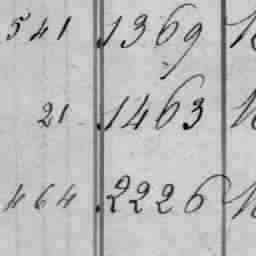 541 1369 N
21 1463 N
464 2226 N